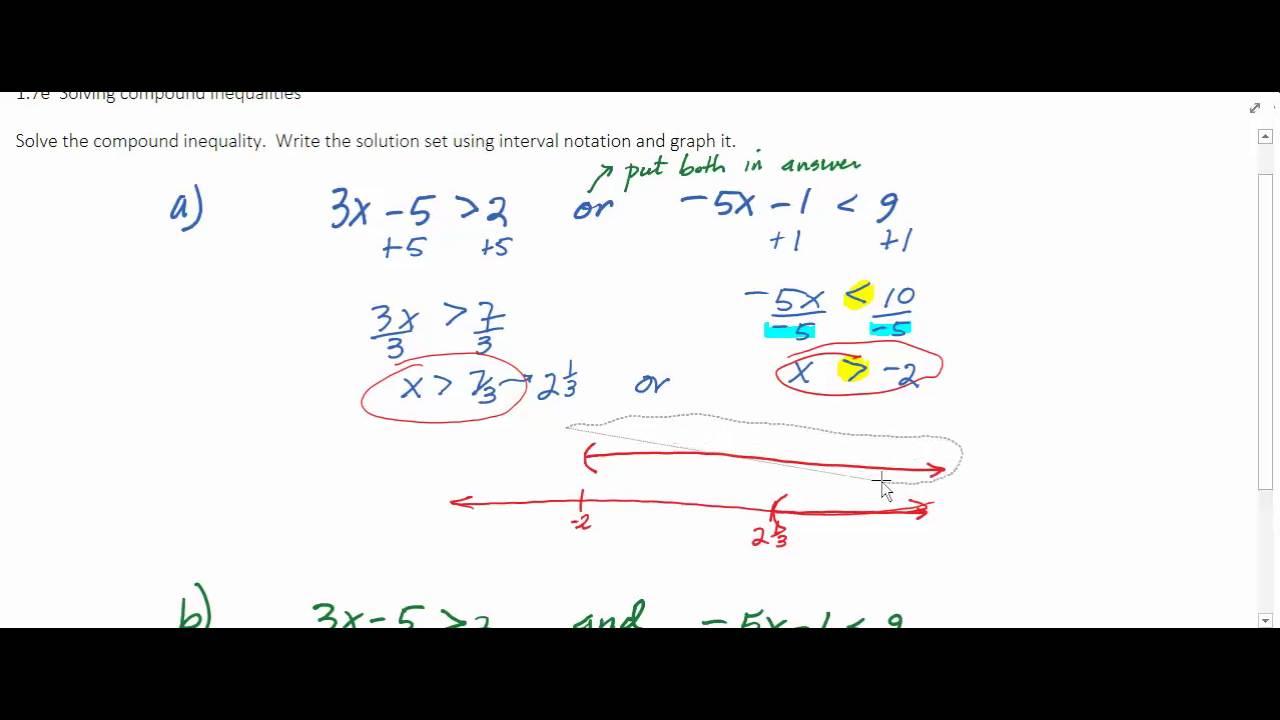 1.7e Solving compound inequalities
Solve the compound inequality. Write the solution set using interval notation and graph it.
put both in answer
a) 3x - 5 > 2 or -5x - 1 < 9
+5 +5 +1 +1
3x/3 > 7/3 -5x/-5 < 10/-5
x > 7/3 → 2 1/3 or x > -2
-2 2 1/3
b) 3x - 5 > 2 and -5x - 1 < 9